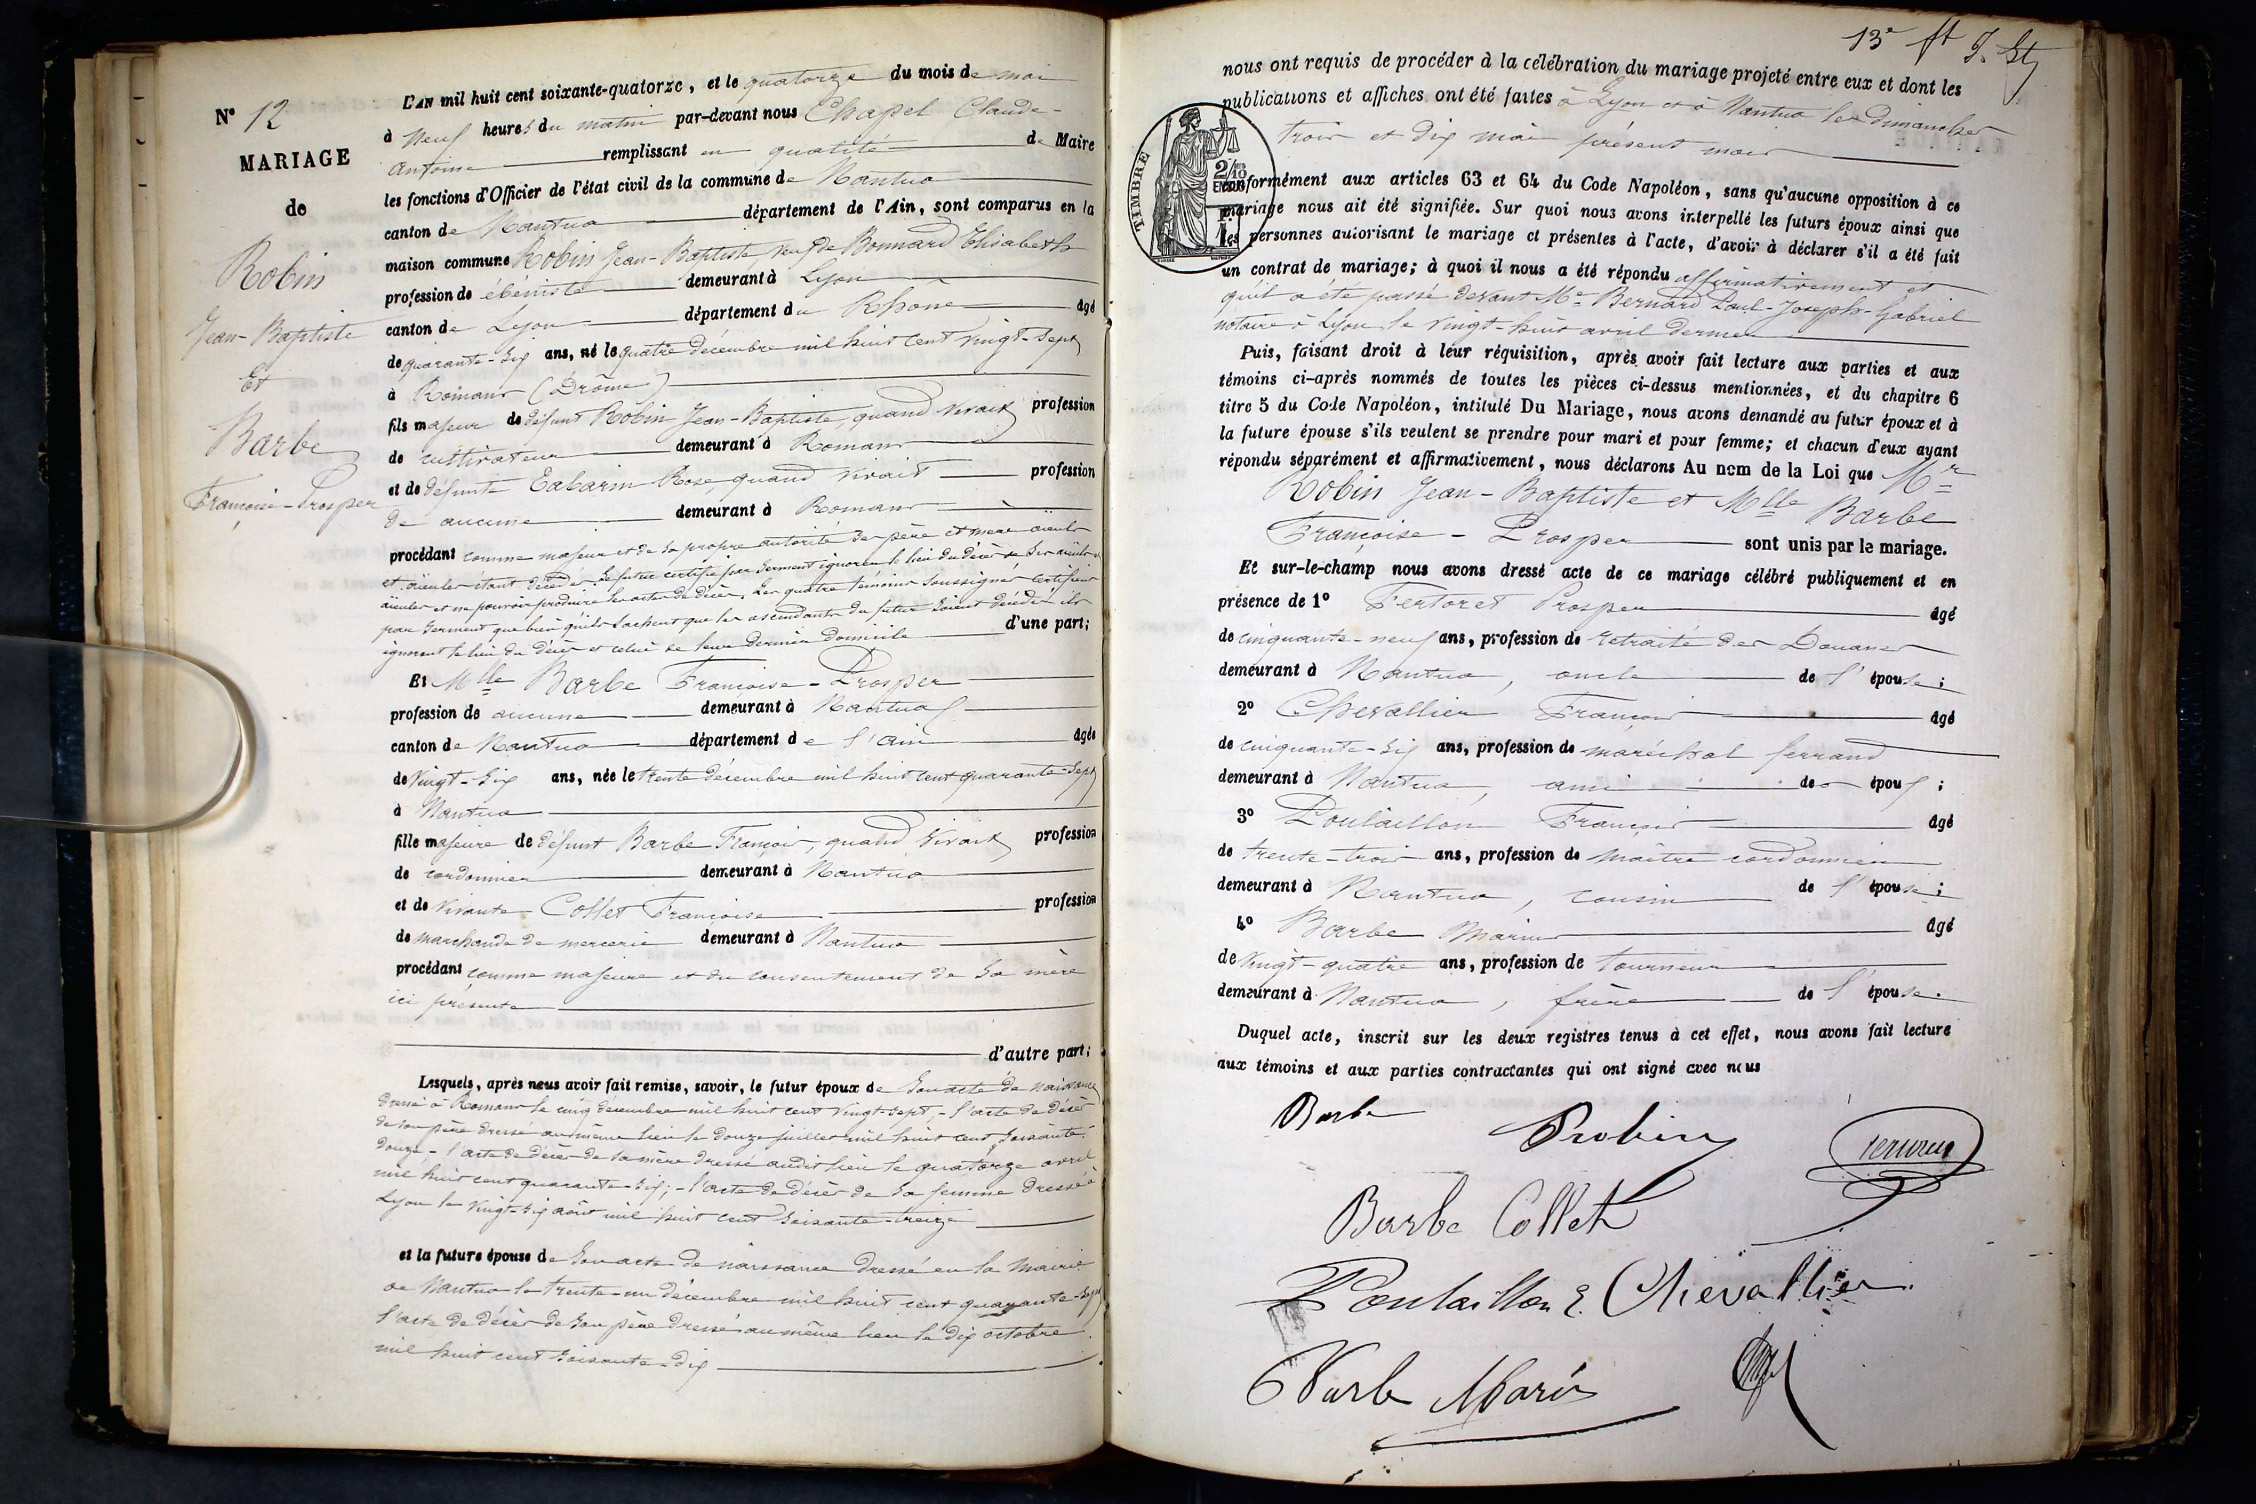 N° 12
MARIAGE
de
Robin
Jean-Baptiste
Et
Barbe
Françoise-Prosper
L'AN mil huit cent soixante-quatorze, et le quatorze du mois de mai
à neuf heures du matin par-devant nous Chapel Claude-
Antoine remplissant en qualité de Maire
les fonctions d'Officier de l'état civil de la commune de Nantua
canton de Nantua département de l'Ain, sont comparus en la
maison commune Robin Jean-Baptiste veuf de Bonnard Elisabeth
profession de ébéniste demeurant à Lyon
canton de Lyon département du Rhône âgé
de quarante-six ans, né le quatre décembre mil huit cent vingt-sept
à Romans (Drôme)
fils majeur de défunt Robin Jean-Baptiste, quand vivait profession
de cultivateur demeurant à Romans
et de défunte Tabarin Rose, quand vivait profession
de aucune demeurant à Romans
procédant comme majeur et de sa propre autorité ses père et mère aïeuls
et aïeules étant décédés, le futur certifie par serment ignorer le lieu du décès de ses aïeuls et
aïeules et ne pouvoir produire les actes de décès, Les quatre témoins soussignés certifient
par serment que bien qu'ils sachent que les ascendants du futur soient décédés ils
ignorent le lieu du décès et celui de leur dernier domicile d'une part;
Et Mlle Barbe Françoise-Prosper
profession de aucune demeurant à Nantua
canton de Nantua département de l'Ain âgée
de vingt-six ans, née le trente décembre mil huit cent quarante-sept
à Nantua
fille majeure de défunt Barbe François, quand vivait profession
de cordonnier demeurant à Nantua
et de vivante Collet Françoise profession
de marchande de mercerie demeurant à Nantua
procédant comme majeure et du consentement de sa mère
ici présente
d'autre part;
Lesquels, après nous avoir fait remise, savoir, le futur époux de son acte de naissance
dressé à Romans le cinq décembre mil huit cent vingt-sept, - l'acte de décès
de son père dressé au même lieu le douze juillet mil huit cent soixante-
douze, - l'acte de décès de sa mère dressé audit lieu le quatorze avril
mil huit cent quarante-six; - l'acte de décès de sa femme dressé à
Lyon le vingt-six août mil huit cent soixante-treize
et la future épouse de son acte de naissance dressé en la Mairie
de Nantua le trente-un décembre mil huit cent quarante-sept
l'acte de décès de son père dressé au même lieu le dix octobre
mil huit cent soixante-dix
13e
nous ont requis de procéder à la célébration du mariage projeté entre eux et dont les
publications et affiches ont été faites à Lyon et à Nantua les dimanches
trois et dix mai présent mois
TIMBRE
2/10
conformément aux articles 63 et 64 du Code Napoléon, sans qu'aucune opposition à ce
mariage nous ait été signifiée. Sur quoi nous avons interpellé les futurs époux ainsi que
les personnes autorisant le mariage et présentes à l'acte, d'avoir à déclarer s'il a été fait
un contrat de mariage; à quoi il nous a été répondu affirmativement et
qu'il a été passé devant Me Bernard Paul-Joseph-Gabriel
notaire à Lyon le vingt-huit avril dernier
Puis, faisant droit à leur réquisition, après avoir fait lecture aux parties et aux
témoins ci-après nommés de toutes les pièces ci-dessus mentionnées, et du chapitre 6
titre 5 du Code Napoléon, intitulé Du Mariage, nous avons demandé au futur époux et à
la future épouse s'ils veulent se prendre pour mari et pour femme; et chacun d'eux ayant
répondu séparément et affirmativement, nous déclarons Au nom de la Loi que Mr
Robin Jean-Baptiste et Mlle Barbe
Françoise-Prosper sont unis par le mariage.
Et sur-le-champ nous avons dressé acte de ce mariage célébré publiquement et en
présence de 1° Fertoret Prosper âgé
de cinquante-neuf ans, profession de retraité des Douanes
demeurant à Nantua, oncle de l'épouse;
2° Chevallier François âgé
de cinquante-six ans, profession de maréchal ferrand
demeurant à Nantua, ami des époux;
3° Poulaillon François âgé
de trente-trois ans, profession de maître cordonnier
demeurant à Nantua, cousin de l'épouse;
4° Barbe Marius âgé
de vingt-quatre ans, profession de tourneur
demeurant à Nantua, frère de l'épouse.
Duquel acte, inscrit sur les deux registres tenus à cet effet, nous avons fait lecture
aux témoins et aux parties contractantes qui ont signé avec nous
Barbe
Robin
Barbe Collet
Poulaillon Chevallier
Barbe Marius